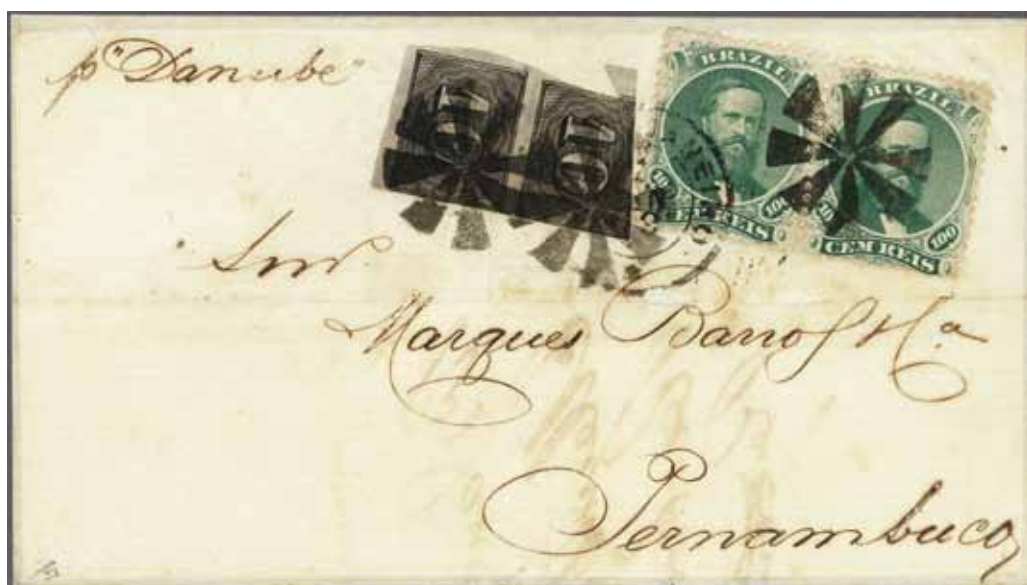 p "Danube"
10 10
BRAZIL
100 100
CEM REIS
BRAZIL
100
CEM REIS
Snrs
Marques Barros & Ca
Pernambuco